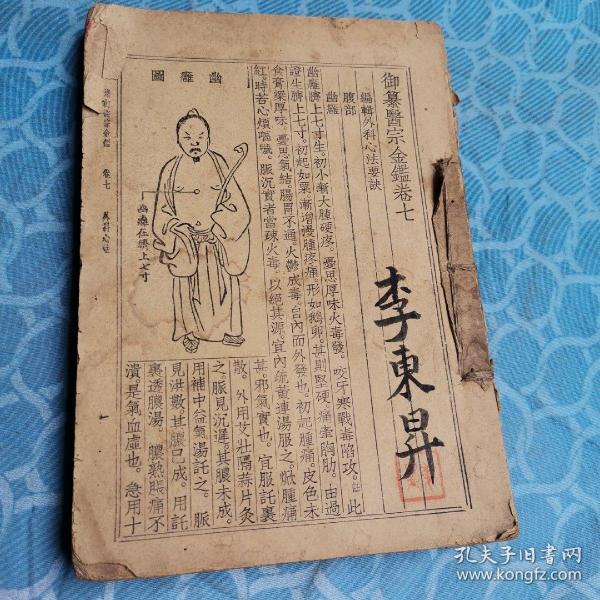 御纂醫宗金鑑卷七
編輯外科心法要訣
腹部
幽癰
幽癰臍上七寸生初小漸大腫硬疼。憂思厚味火毒發。咬牙寒戰毒陷攻。註此
證生臍上七寸。初起如粟漸增漫腫疼痛形如鵝卵。甚則堅硬痛牽胸肋。由過
食膏粱厚味。憂思氣結腸胃不通。火鬱成毒。自內而外發也。初起腫痛。皮色未
紅。時若心煩嘔噦。脈沉實者當疎火毒。以絕其源。宜內疎黃連湯服之。焮腫痛
甚。邪氣實也。宜服託裏
散。外用艾壯隔蒜片灸
之。脈見沉遲。其膿未成。
用補中益氣湯託之。脈
見洪數。其膿已成。用託
裏透膿湯。膿熟脹痛不
潰。是氣血虛也。急用十
幽癰圖
幽癰在臍上七寸
卷七
李東昇
孔夫子旧书网
www.kongfz.com